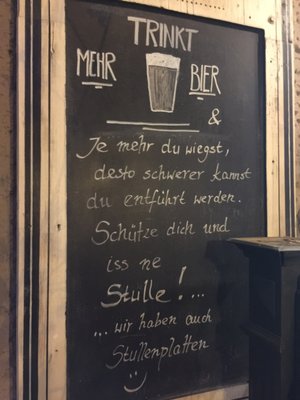 TRINKT
MEHR BIER
&
Je mehr du wiegst,
desto schwerer kannst
du entführt werden.
Schütze dich und
iss ne
Stulle!...
...wir haben auch
Stullenplatten